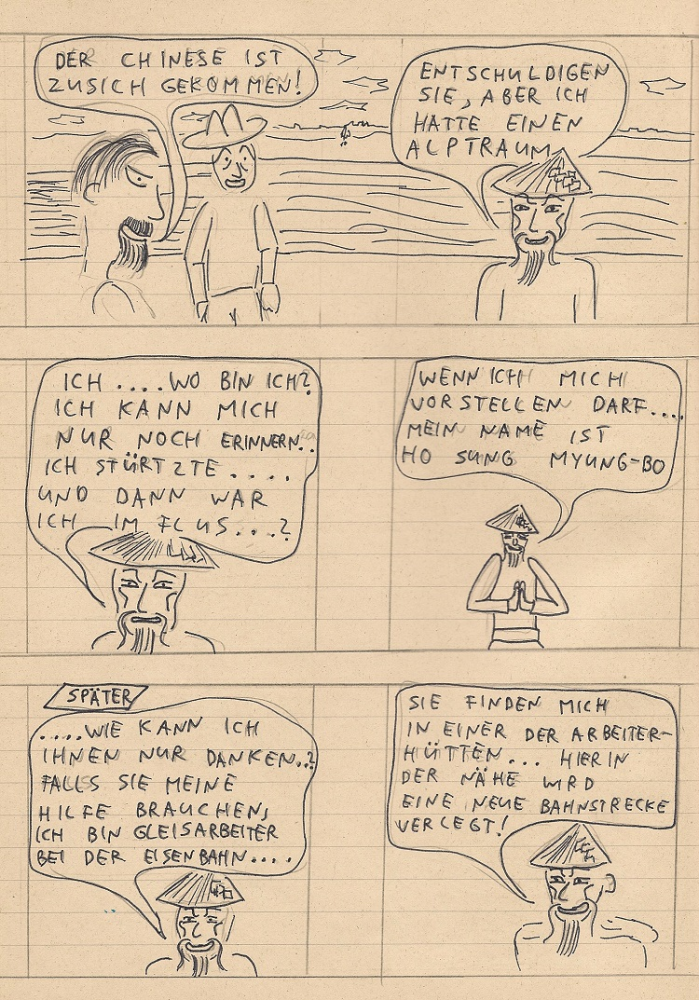 DER CHINESE IST
ZUSICH GEKOMMEN!
ENTSCHULDIGEN
SIE, ABER ICH
HATTE EINEN
ALPTRAUM
ICH .... WO BIN ICH?
ICH KANN MICH
NUR NOCH ERINNERN..
ICH STÜRTZTE ....
UND DANN WAR
ICH IM FLUS...?
WENN ICH MICH
VORSTELLEN DARF....
MEIN NAME IST
HO SUNG MYUNG-BO
SPÄTER
.....WIE KANN ICH
IHNEN NUR DANKEN..?
FALLS SIE MEINE
HILFE BRAUCHEN,
ICH BIN GLEISARBEITER
BEI DER EISENBAHN....
SIE FINDEN MICH
IN EINER DER ARBEITER-
HÜTTEN... HIER IN
DER NÄHE WIRD
EINE NEUE BAHNSTRECKE
VERLEGT!